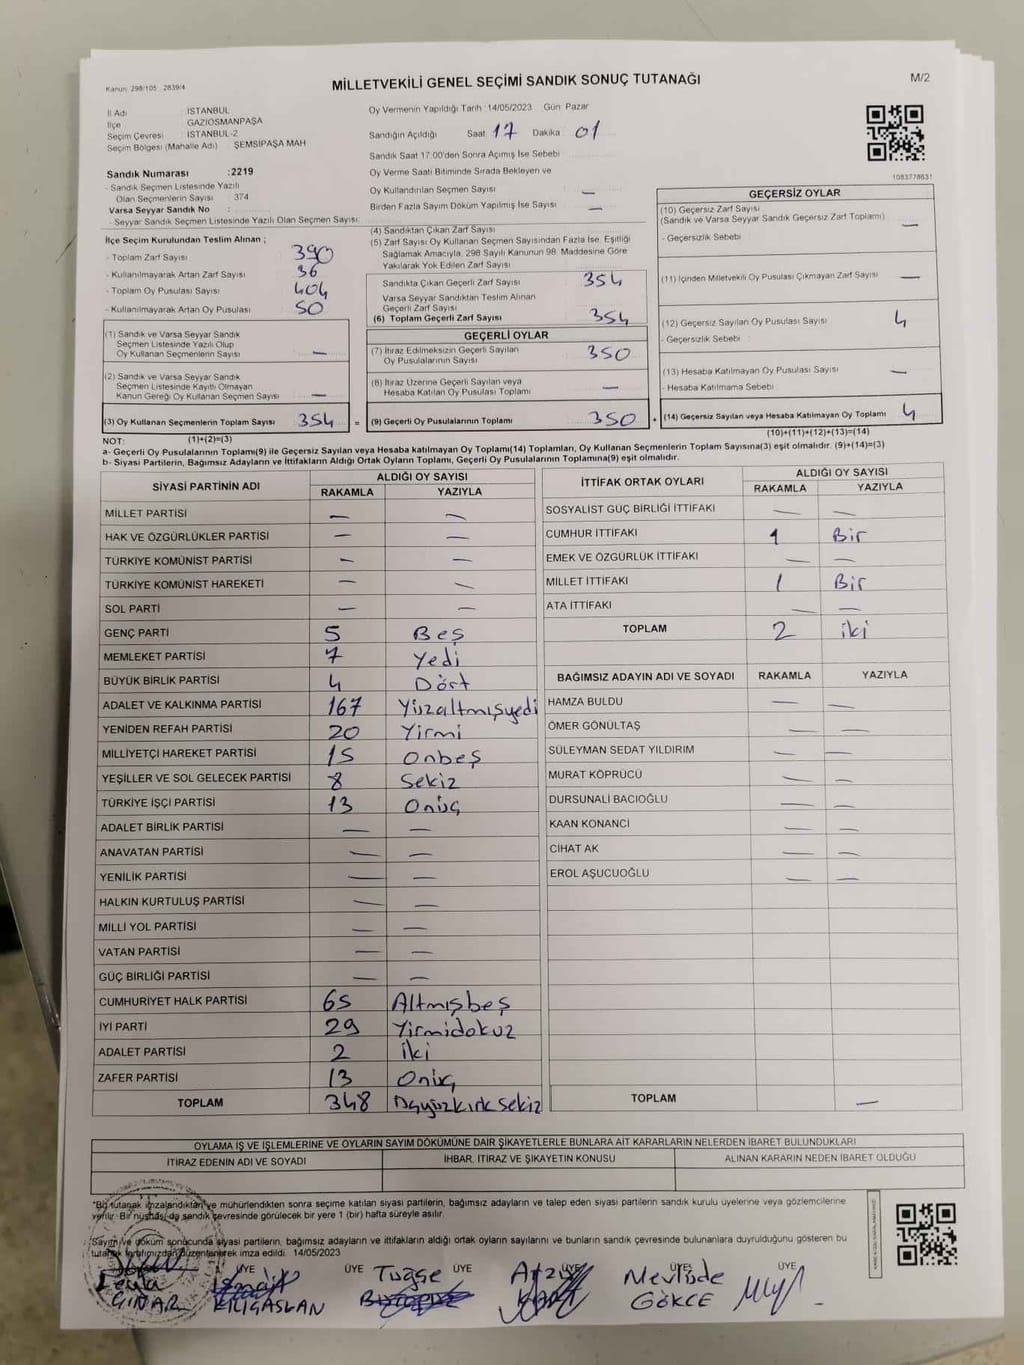 Kanun: 298/105 2839/4
MİLLETVEKİLİ GENEL SEÇİMİ SANDIK SONUÇ TUTANAĞI
M/2
İl Adı İSTANBUL
İlçe GAZİOSMANPAŞA
Seçim Çevresi İSTANBUL-2
Seçim Bölgesi (Mahalle Adı) ŞEMSİPAŞA MAH
Oy Vermenin Yapıldığı Tarih 14/05/2023 Gün Pazar
Sandığın Açıldığı Saat 17 Dakika 01
Sandık Saat 17:00'den Sonra Açımış İse Sebebi
Oy Verme Saati Bitiminde Sırada Bekleyen ve
Oy Kullandırılan Seçmen Sayısı —
Birden Fazla Sayım Döküm Yapılmış İse Sayısı —
1083778631
Sandık Numarası :2219
- Sandık Seçmen Listesinde Yazılı
Olan Seçmenlerin Sayısı 374
Varsa Seyyar Sandık No :
- Seyyar Sandık Seçmen Listesinde Yazılı Olan Seçmen Sayısı:
İlçe Seçim Kurulundan Teslim Alınan ;
- Toplam Zarf Sayısı 390
- Kullanılmayarak Artan Zarf Sayısı 36
- Toplam Oy Pusulası Sayısı 404
- Kullanılmayarak Artan Oy Pusulası 50
(1) Sandık ve Varsa Seyyar Sandık
Seçmen Listesinde Yazılı Olup
Oy Kullanan Seçmenlerin Sayısı —
(2) Sandık ve Varsa Seyyar Sandık
Seçmen Listesinde Kayıtlı Olmayan
Kanun Gereği Oy Kullanan Seçmen Sayısı —
(3) Oy Kullanan Seçmenlerin Toplam Sayısı 354 =
(1)+(2)=(3)
(4) Sandıktan Çıkan Zarf Sayısı
(5) Zarf Sayısı Oy Kullanan Seçmen Sayısından Fazla İse, Eşitliği
Sağlamak Amacıyla, 298 Sayılı Kanunun 98. Maddesine Göre
Yakılarak Yok Edilen Zarf Sayısı
Sandıkta Çıkan Geçerli Zarf Sayısı 354
Varsa Seyyar Sandıktan Teslim Alınan
Geçerli Zarf Sayısı
(6) Toplam Geçerli Zarf Sayısı 354
GEÇERLİ OYLAR
(7) İtiraz Edilmeksizin Geçerli Sayılan
Oy Pusulalarının Sayısı 350
(8) İtiraz Üzerine Geçerli Sayılan veya
Hesaba Katılan Oy Pusulası Toplamı —
(9) Geçerli Oy Pusulalarının Toplamı 350 +
GEÇERSİZ OYLAR
(10) Geçersiz Zarf Sayısı
(Sandık ve Varsa Seyyar Sandık Geçersiz Zarf Toplamı) —
- Geçersizlik Sebebi
(11) İçinden Milletvekili Oy Pusulası Çıkmayan Zarf Sayısı —
(12) Geçersiz Sayılan Oy Pusulası Sayısı 4
- Geçersizlik Sebebi :
(13) Hesaba Katılmayan Oy Pusulası Sayısı —
- Hesaba Katılmama Sebebi :
(14) Geçersiz Sayılan veya Hesaba Katılmayan Oy Toplamı 4
(10)+(11)+(12)+(13)=(14)
NOT:
a- Geçerli Oy Pusulalarının Toplamı(9) ile Geçersiz Sayılan veya Hesaba katılmayan Oy Toplamı(14) Toplamları, Oy Kullanan Seçmenlerin Toplam Sayısına(3) eşit olmalıdır. (9)+(14)=(3)
b- Siyasi Partilerin, Bağımsız Adayların ve İttifakların Aldığı Ortak Oyların Toplamı, Geçerli Oy Pusulalarının Toplamına(9) eşit olmalıdır.
SİYASİ PARTİNİN ADI ALDIĞI OY SAYISI
RAKAMLA YAZIYLA
MİLLET PARTİSİ — —
HAK VE ÖZGÜRLÜKLER PARTİSİ — —
TÜRKİYE KOMÜNİST PARTİSİ — —
TÜRKİYE KOMÜNİST HAREKETİ — —
SOL PARTİ — —
GENÇ PARTİ 5 Beş
MEMLEKET PARTİSİ 7 Yedi
BÜYÜK BİRLİK PARTİSİ 4 Dört
ADALET VE KALKINMA PARTİSİ 167 Yüzaltmışyedi
YENİDEN REFAH PARTİSİ 20 Yirmi
MİLLİYETÇİ HAREKET PARTİSİ 15 Onbeş
YEŞİLLER VE SOL GELECEK PARTİSİ 8 Sekiz
TÜRKİYE İŞÇİ PARTİSİ 13 Onüç
ADALET BİRLİK PARTİSİ — —
ANAVATAN PARTİSİ — —
YENİLİK PARTİSİ — —
HALKIN KURTULUŞ PARTİSİ — —
MİLLİ YOL PARTİSİ — —
VATAN PARTİSİ — —
GÜÇ BİRLİĞİ PARTİSİ — —
CUMHURİYET HALK PARTİSİ 65 Altmışbeş
İYİ PARTİ 29 Yirmidokuz
ADALET PARTİSİ 2 İki
ZAFER PARTİSİ 13 Onüç
TOPLAM 348
İTTİFAK ORTAK OYLARI ALDIĞI OY SAYISI
RAKAMLA YAZIYLA
SOSYALİST GÜÇ BİRLİĞİ İTTİFAKI — —
CUMHUR İTTİFAKI 1 Bir
EMEK VE ÖZGÜRLÜK İTTİFAKI — —
MİLLET İTTİFAKI 1 Bir
ATA İTTİFAKI — —
TOPLAM 2 İki
BAĞIMSIZ ADAYIN ADI VE SOYADI RAKAMLA YAZIYLA
HAMZA BULDU — —
ÖMER GÖNÜLTAŞ — —
SÜLEYMAN SEDAT YILDIRIM — —
MURAT KÖPRÜCÜ — —
DURSUNALİ BACIOĞLU — —
KAAN KONANCİ — —
CİHAT AK — —
EROL AŞUCUOĞLU — —
TOPLAM —
OYLAMA İŞ VE İŞLEMLERİNE VE OYLARIN SAYIM DÖKÜMÜNE DAİR ŞİKAYETLERLE BUNLARA AİT KARARLARIN NELERDEN İBARET BULUNDUKLARI
İTİRAZ EDENİN ADI VE SOYADI İHBAR, İTİRAZ VE ŞİKAYETİN KONUSU ALINAN KARARIN NEDEN İBARET OLDUĞU
*Bu tutanak imzalandıktan ve mühürlendikten sonra seçime katılan siyasi partilerin, bağımsız adayların ve talep eden siyasi partilerin sandık kurulu üyelerine veya gözlemcilerine
verilir. Bir nüshası da sandık çevresinde görülecek bir yere 1 (bir) hafta süreyle asılır.
Sayım ve döküm sonucunda siyasi partilerin, bağımsız adayların ve ittifakların aldığı ortak oyların sayılarını ve bunların sandık çevresinde bulunanlara duyrulduğunu gösteren bu
tutanak tarafımızdan düzenlenerek imza edildi. 14/05/2023
ÜYE ÜYE ÜYE ÜYE ÜYE ÜYE
Leyla ÇINAR
İsmail KILIÇASLAN
Tuğçe
Arzu
Mevlüde GÖKCE